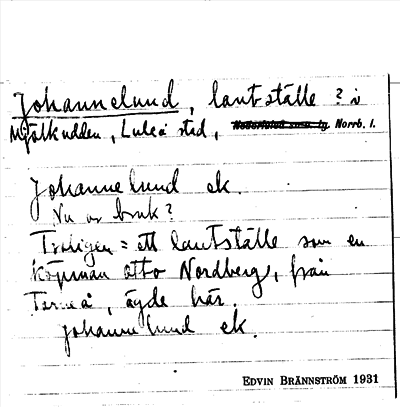 Johannelund, lantställe ? i
Mjölkudden, Luleå stad, Nederluleå sn, Norrb. l.
Johannelund ek.
Nu ur bruk?
Troligen = ett lantställe som en
köpman Otto Nordberg, från
Torneå, ägde här.
Johannelund ek.
EDVIN BRÄNNSTRÖM 1931